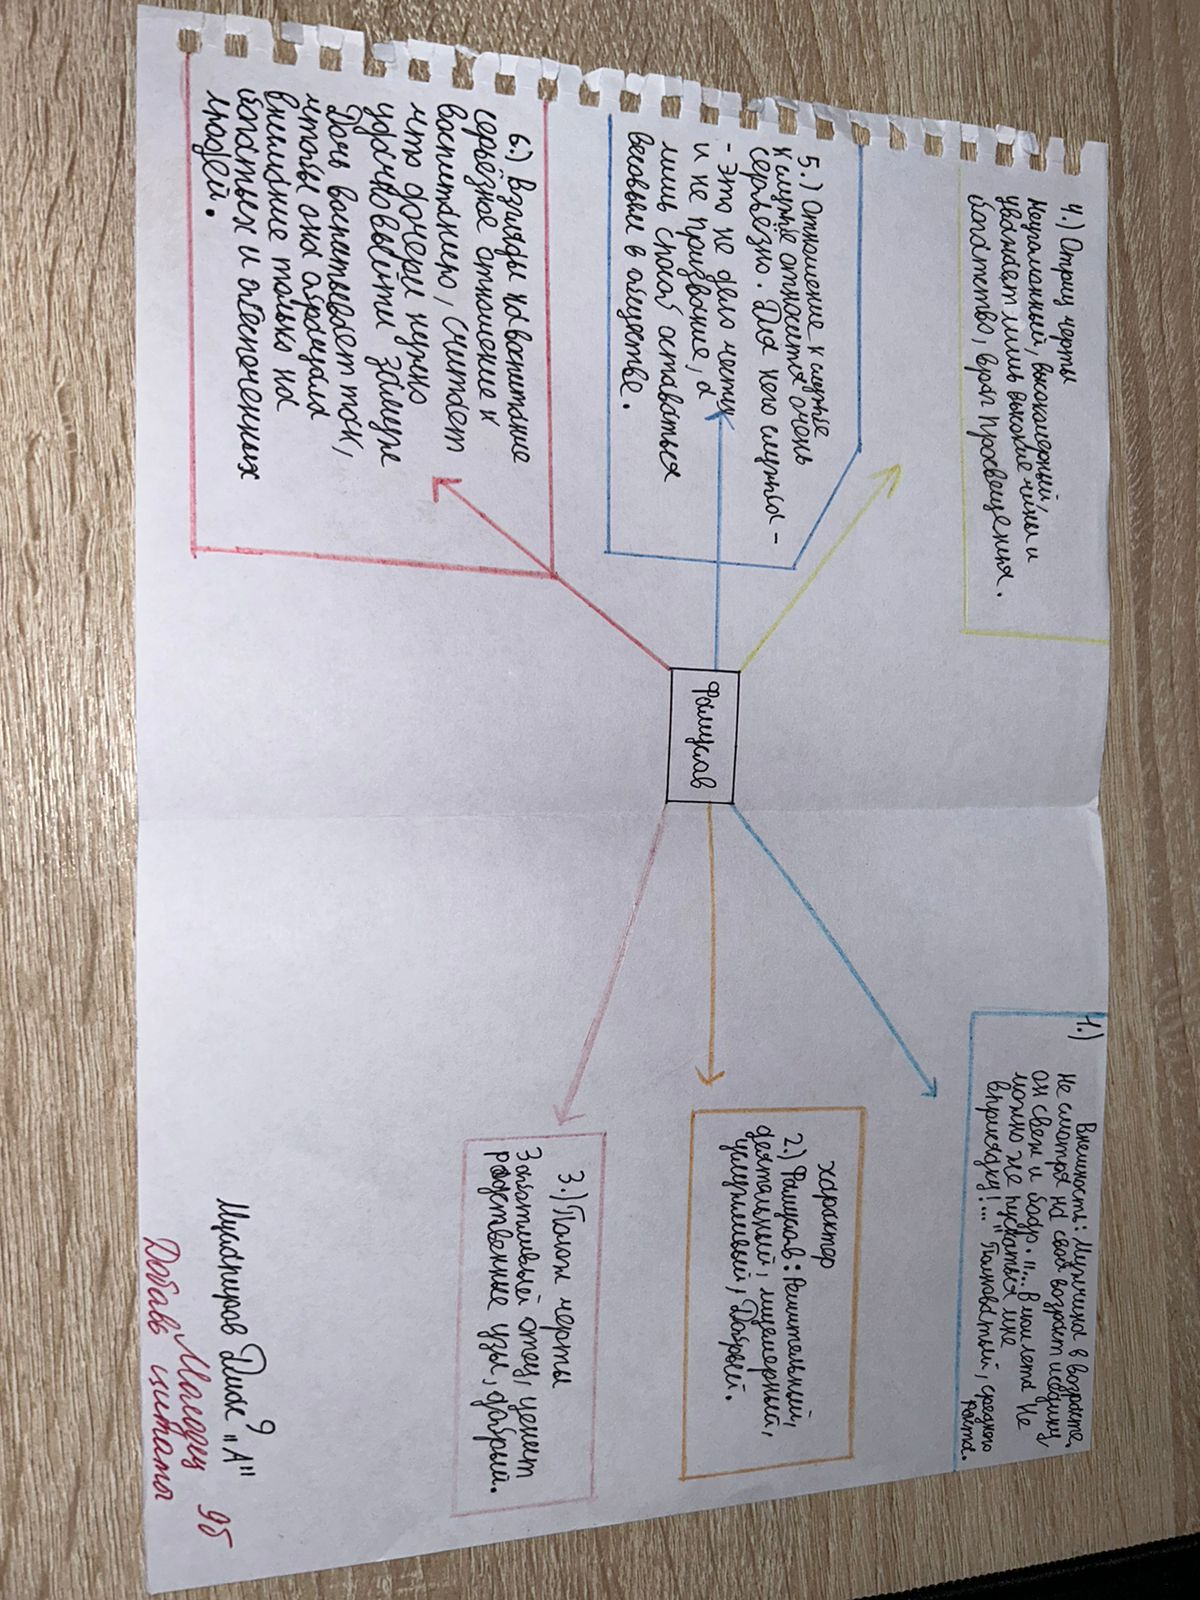 Фамусов
1.)
Внешность: Мужчина в возрасте.
Не смотря на свой возраст и седину,
он свеж и бодр. "... В мои лета не
можно же пускаться мне
вприсядку!..." Полноватый, среднего
роста.
характер
2.) Фамусов: Решительный,
деятельный, лицемерный,
услужливый, Добрый.
3.) Полож черты
Заботливый отец, ценит
родственные узы, добрый.
4.) Отриц черты
Неугомонный, высокомерный,
уважает лишь высокие чины и
богатство, враг просвещения.
5.) Отношение к службе
К службе относится очень
серьёзно. Для него служба -
- Это не дело чести
и не призвание, а
лишь способ оставаться
весовым в обществе.
6.) Взгляды на воспитание
серьёзное отношение к
воспитанию, считает
что дочери нужно
удачно выйти замуж
Дочь воспитывает так,
чтобы она обращала
внимание только на
богатых и обеспеченных
людей.
9 "А"
Молодец 9б
Добавь цитаты